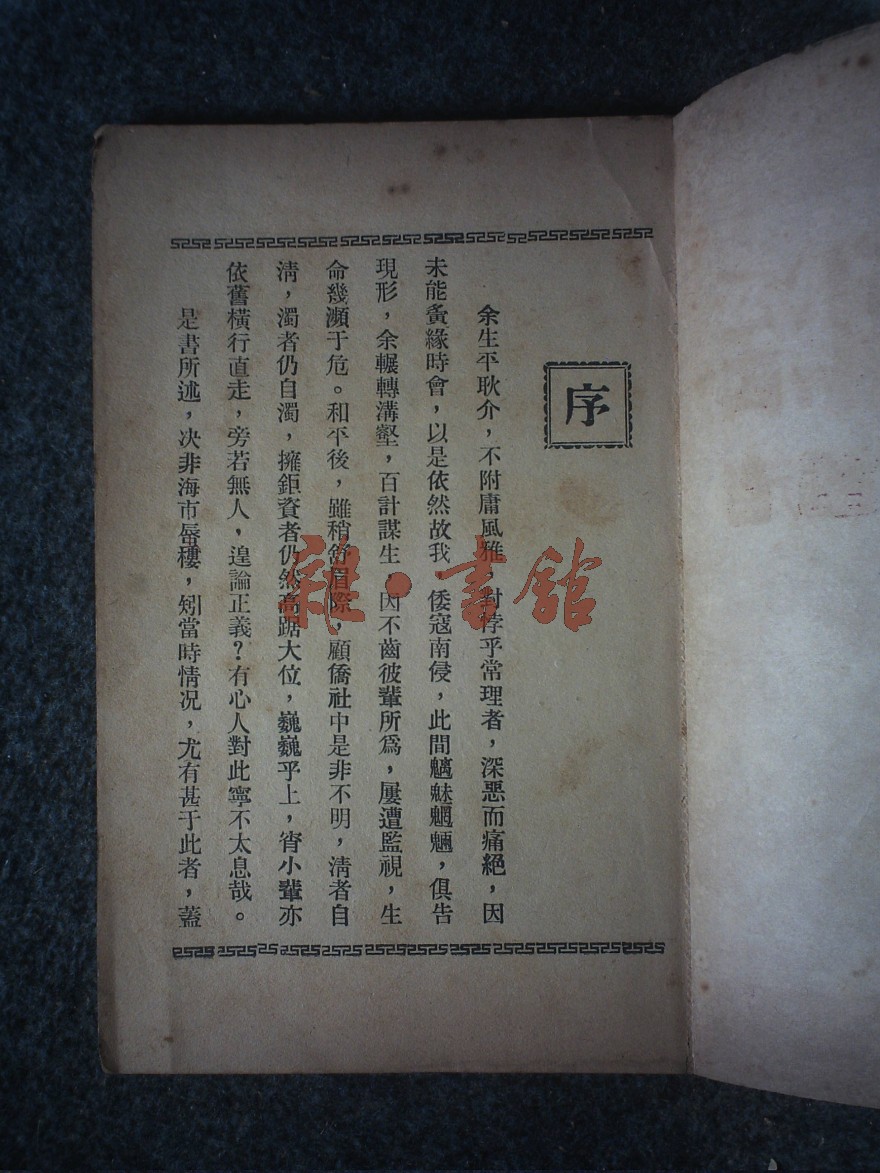 序
余生平耿介，不附庸風雅，對悖乎常理者，深惡而痛絕，因
未能夤緣時會，以是依然故我 倭寇南侵，此間魑魅魍魎，俱告
現形，余輾轉溝壑，百計謀生，因不齒彼輩所爲，屢遭監視，生
命幾瀕于危。和平後，雖稍舒眉際，顧僑社中是非不明，清者自
清，濁者仍自濁，擁鉅資者仍然高踞大位，巍巍乎上，宵小輩亦
依舊橫行直走，旁若無人，遑論正義？有心人對此寧不太息哉。
是書所述，決非海市蜃樓，矧當時情況，尤有甚于此者，蓋
雜·書館